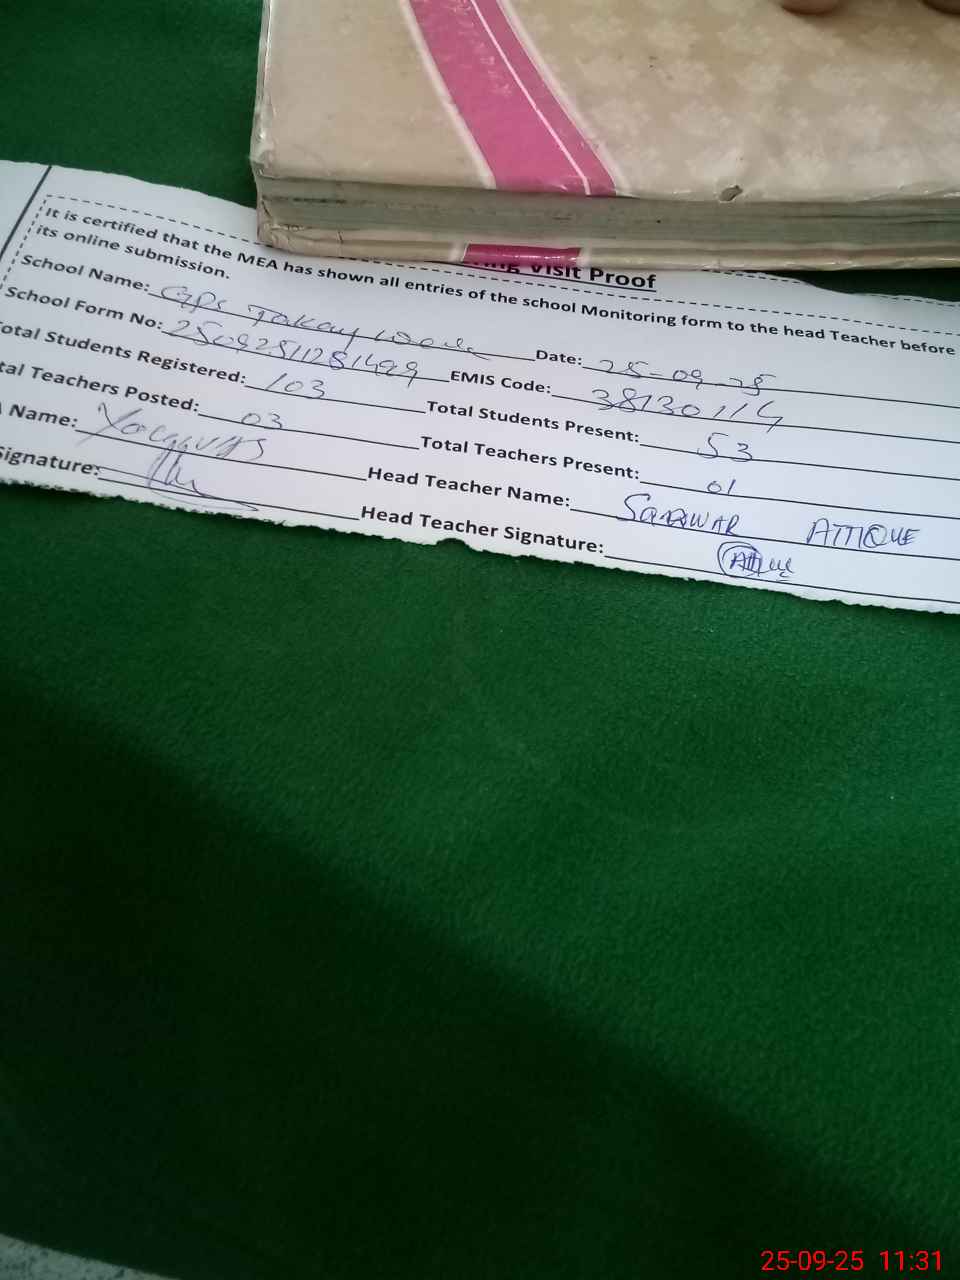 ng Visit Proof
It is certified that the MEA has shown all entries of the school Monitoring form to the head Teacher before
its online submission.
School Name: GPS Takay Date: 25-09-25
School Form No: 25092511281499 EMIS Code: 38130114
Total Students Registered: 103 Total Students Present: 53
tal Teachers Posted: 03 Total Teachers Present: 01
Name: Head Teacher Name: SARWAR ATTIQUE
Signature: Head Teacher Signature:
25-09-25 11:31